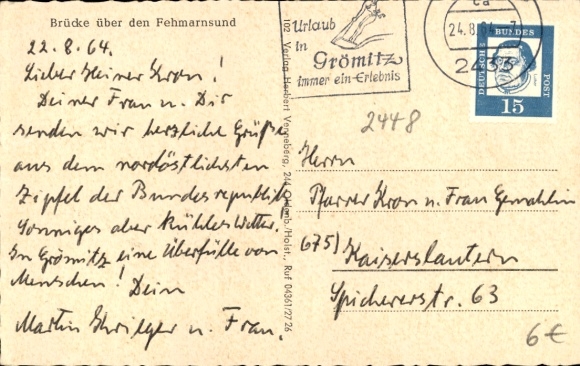 Brücke über den Fehmarnsund
22.8.64.
Lieber Heiner Kron!
Deiner Frau u. Dir
senden wir herzliche Grüße
aus dem nordöstlichsten
Zipfel der Bundesrepublik
Sonniges aber kühles Wetter.
In Grömitz eine Überfülle von
Menschen! Dein
Martin u. Frau.
102 Verlag Herbert 244 Oldenb./Holst., Ruf 04361/27 26
Urlaub
in
Grömitz
immer ein Erlebnis
24.8.64-7
2433
DEUTSCHE BUNDES POST
15
2448
Herrn
Pfarrer Kron u. Frau Gemahlin
675) Kaiserslautern
Spichererstr. 63
6€